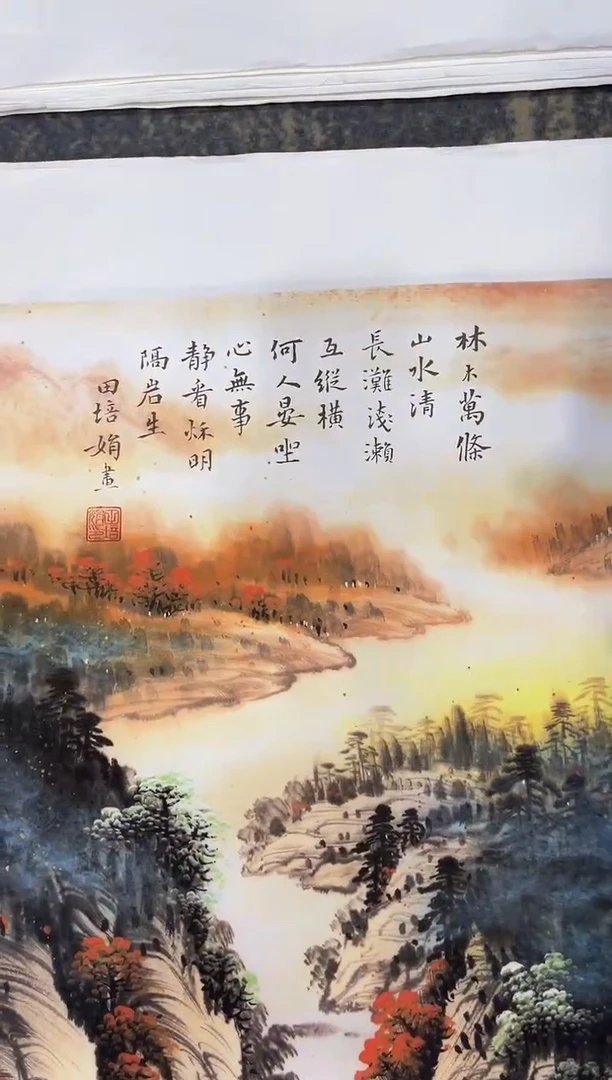 林木萬條
山水清
長灘淺瀨
互縱橫
何人晏坐
心無事
靜看秌明
隔岩生
田培娟畫